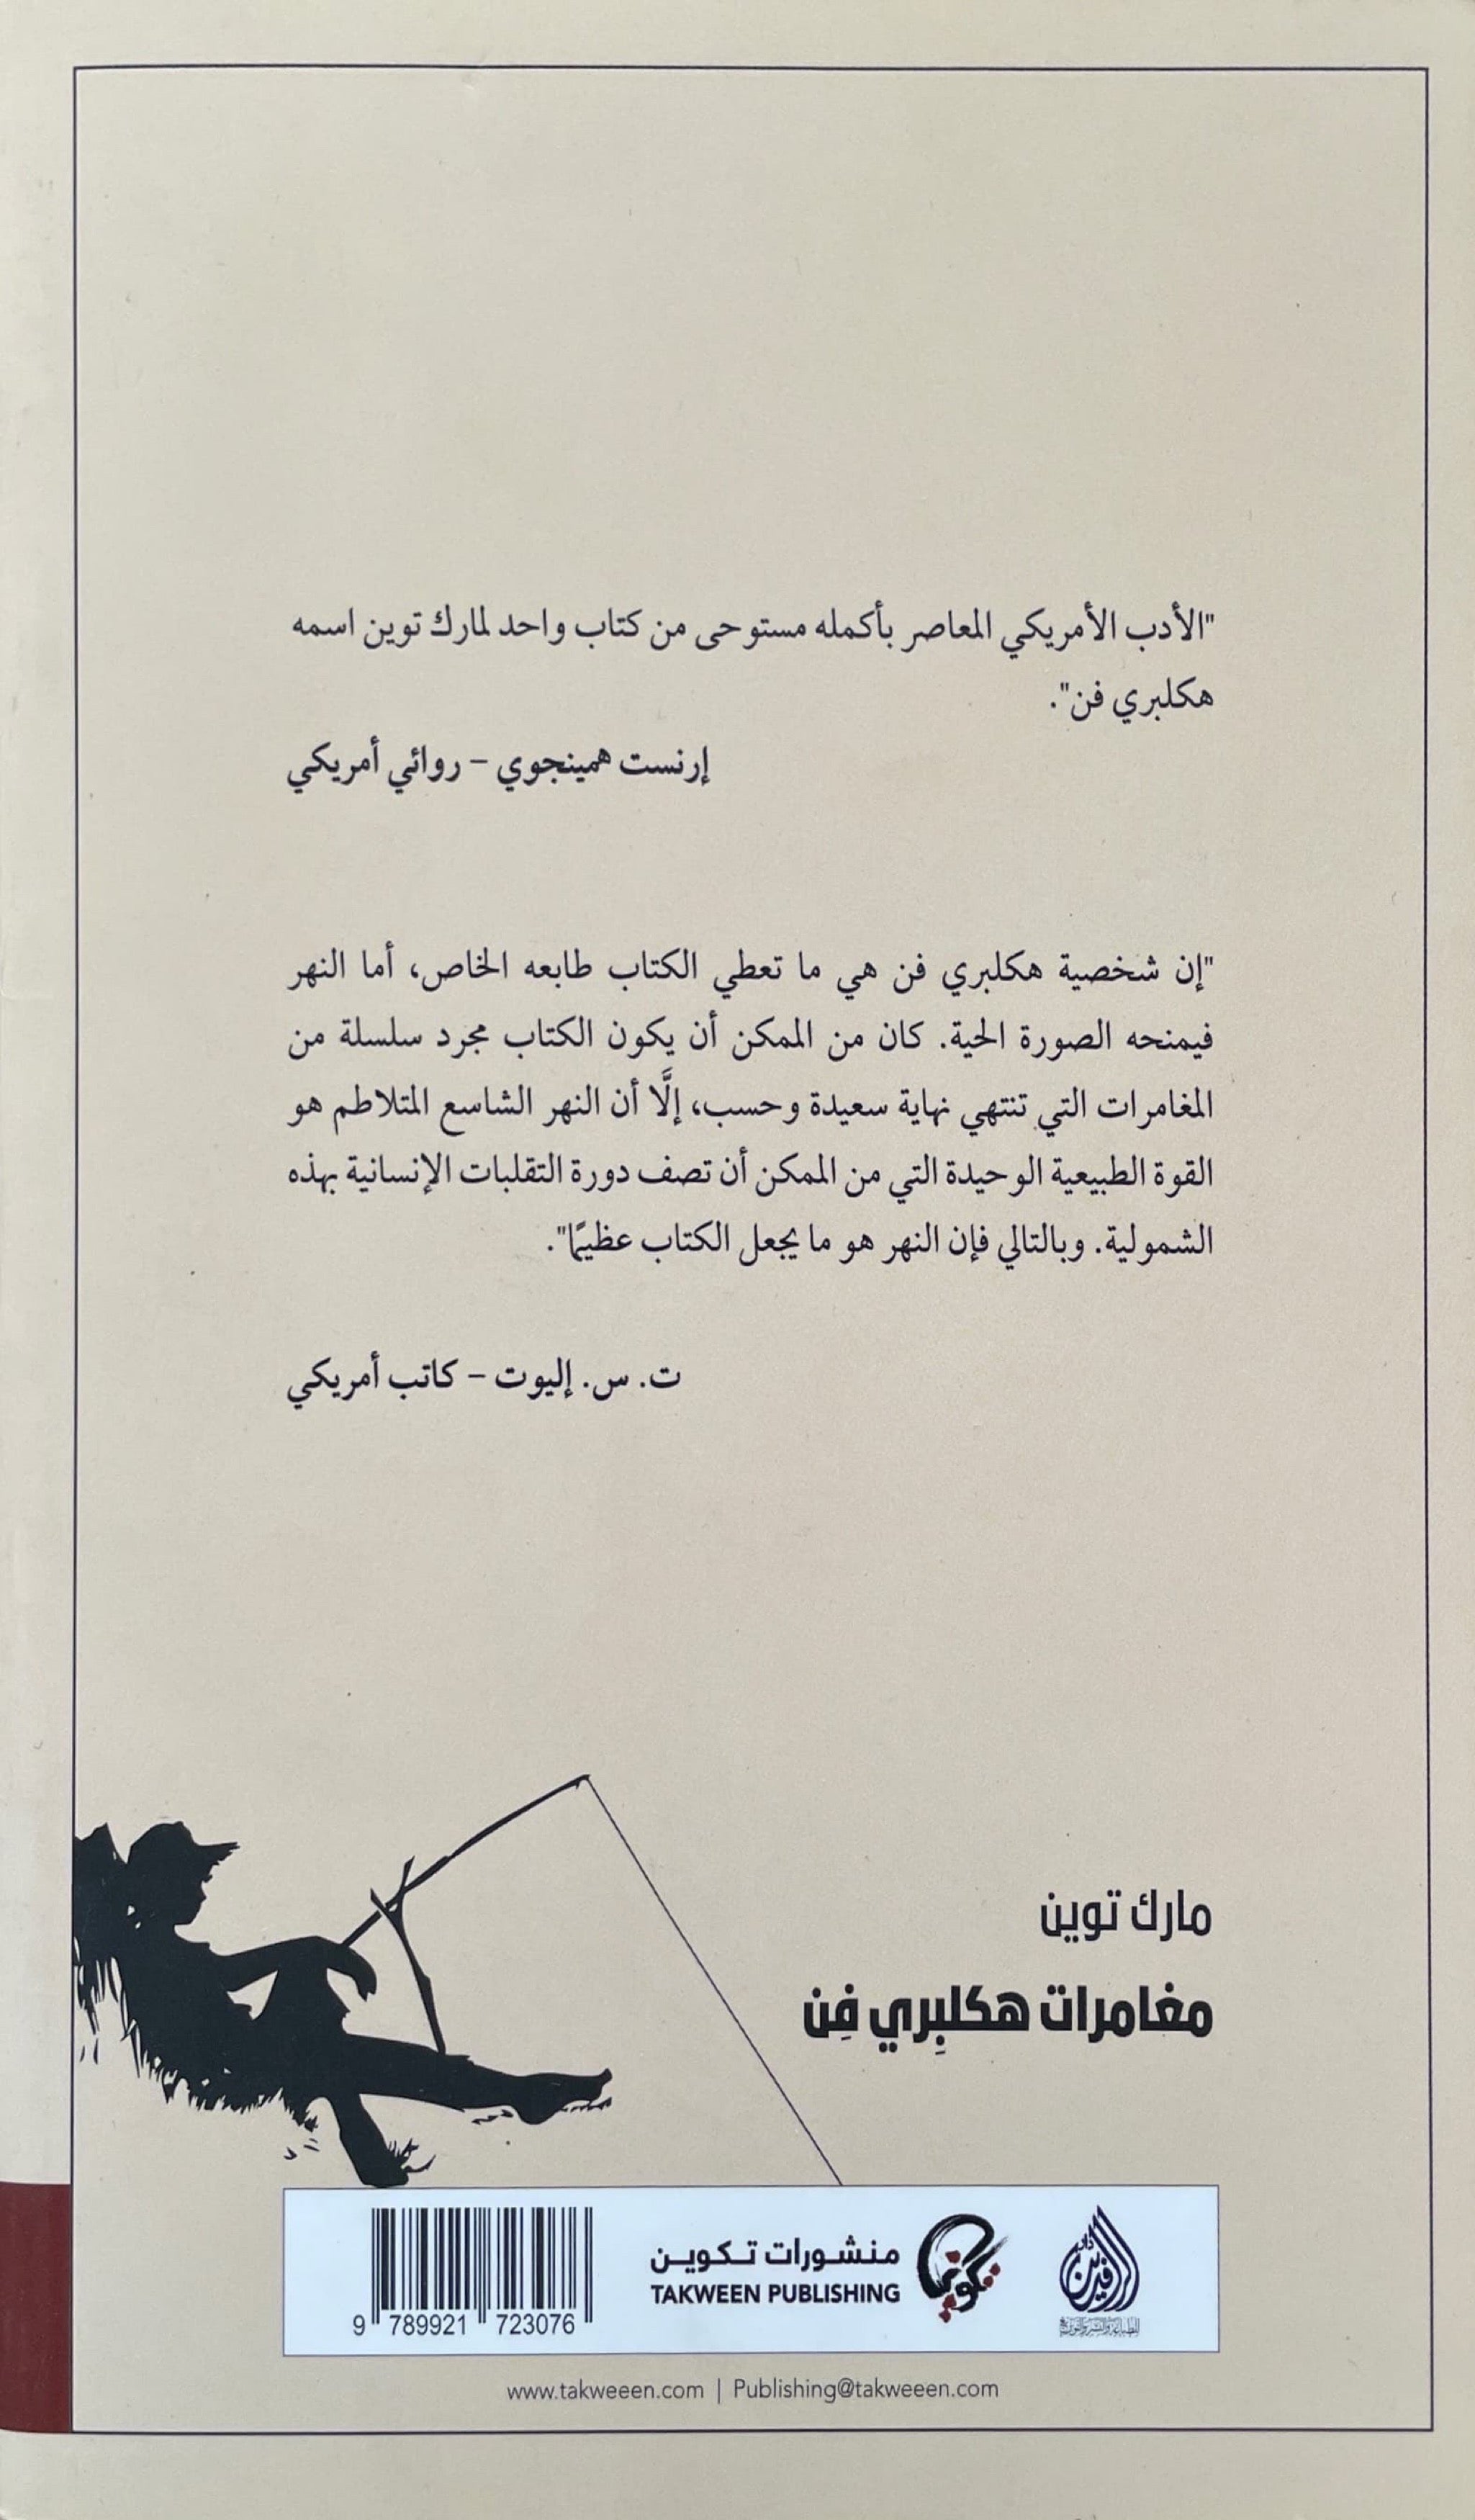 "الأدب الأمريكي المعاصر بأكمله مستوحى من كتاب واحد لمارك توين اسمه
هكلبري فن".
إرنست همينجوي – روائي أمريكي
"إن شخصية هكلبري فن هي ما تعطي الكتاب طابعه الخاص، أما النهر
فيمنحه الصورة الحية. كان من الممكن أن يكون الكتاب مجرد سلسلة من
المغامرات التي تنتهي نهاية سعيدة وحسب، إلَّا أن النهر الشاسع المتلاطم هو
القوة الطبيعية الوحيدة التي من الممكن أن تصف دورة التقلبات الإنسانية بهذه
الشمولية. وبالتالي فإن النهر هو ما يجعل الكتاب عظيمًا".
ت. س. إليوت – كاتب أمريكي
مارك توين
مغامرات هكلبِري فِن
دار الرافدين
تكوين
منشورات تكوين
TAKWEEN PUBLISHING
9 789921 723076
www.takweeen.com | Publishing@takweeen.com